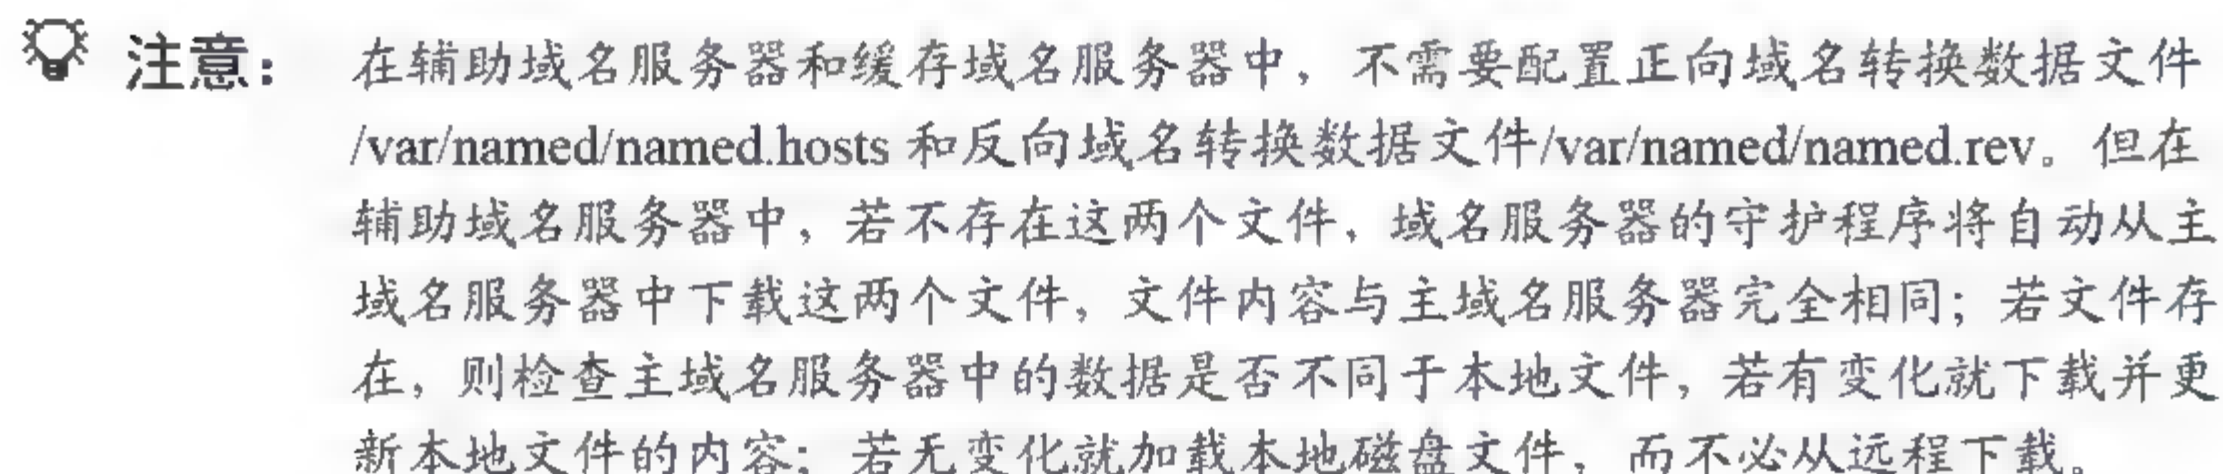 注意： 在辅助域名服务器和缓存域名服务器中，不需要配置正向域名转换数据文件
/var/named/named.hosts 和反向域名转换数据文件/var/named/named.rev。但在
辅助域名服务器中，若不存在这两个文件，域名服务器的守护程序将自动从主
域名服务器中下载这两个文件，文件内容与主域名服务器完全相同；若文件存
在，则检查主域名服务器中的数据是否不同于本地文件，若有变化就下载并更
新本地文件的内容；若无变化就加载本地磁盘文件，而不必从远程下载。